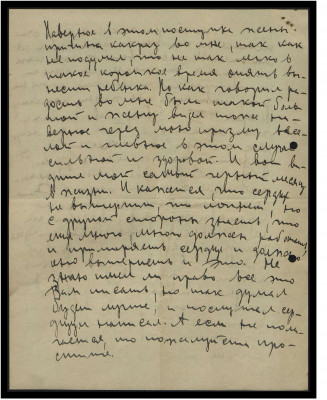 Наверное в этом поступке жены
причина как раз во мне, так как
не подумал, что не так легко в
такое короткое время опять вы-
нести ребенка. Но как говорил ра-
дость во мне была такой боль-
шой и жену видел тоже на-
верное через мою призму весе-
лой и главное в этом случае
сильной и здоровой. И вот ви-
дите мой самый черный месяц
в жизни. И кажется, что сердце
не выдержит, что лопнет, но
с другой стороны знает, что
еще много, много должен работать
и примирять сердце и должно
оно выдержать и это. Не
знаю имел ли право все это
Вам писать, но так думал
будет лучше, и послушал сер-
дце и написал. А если не пола-
гается, то пожалуйста про-
стите.